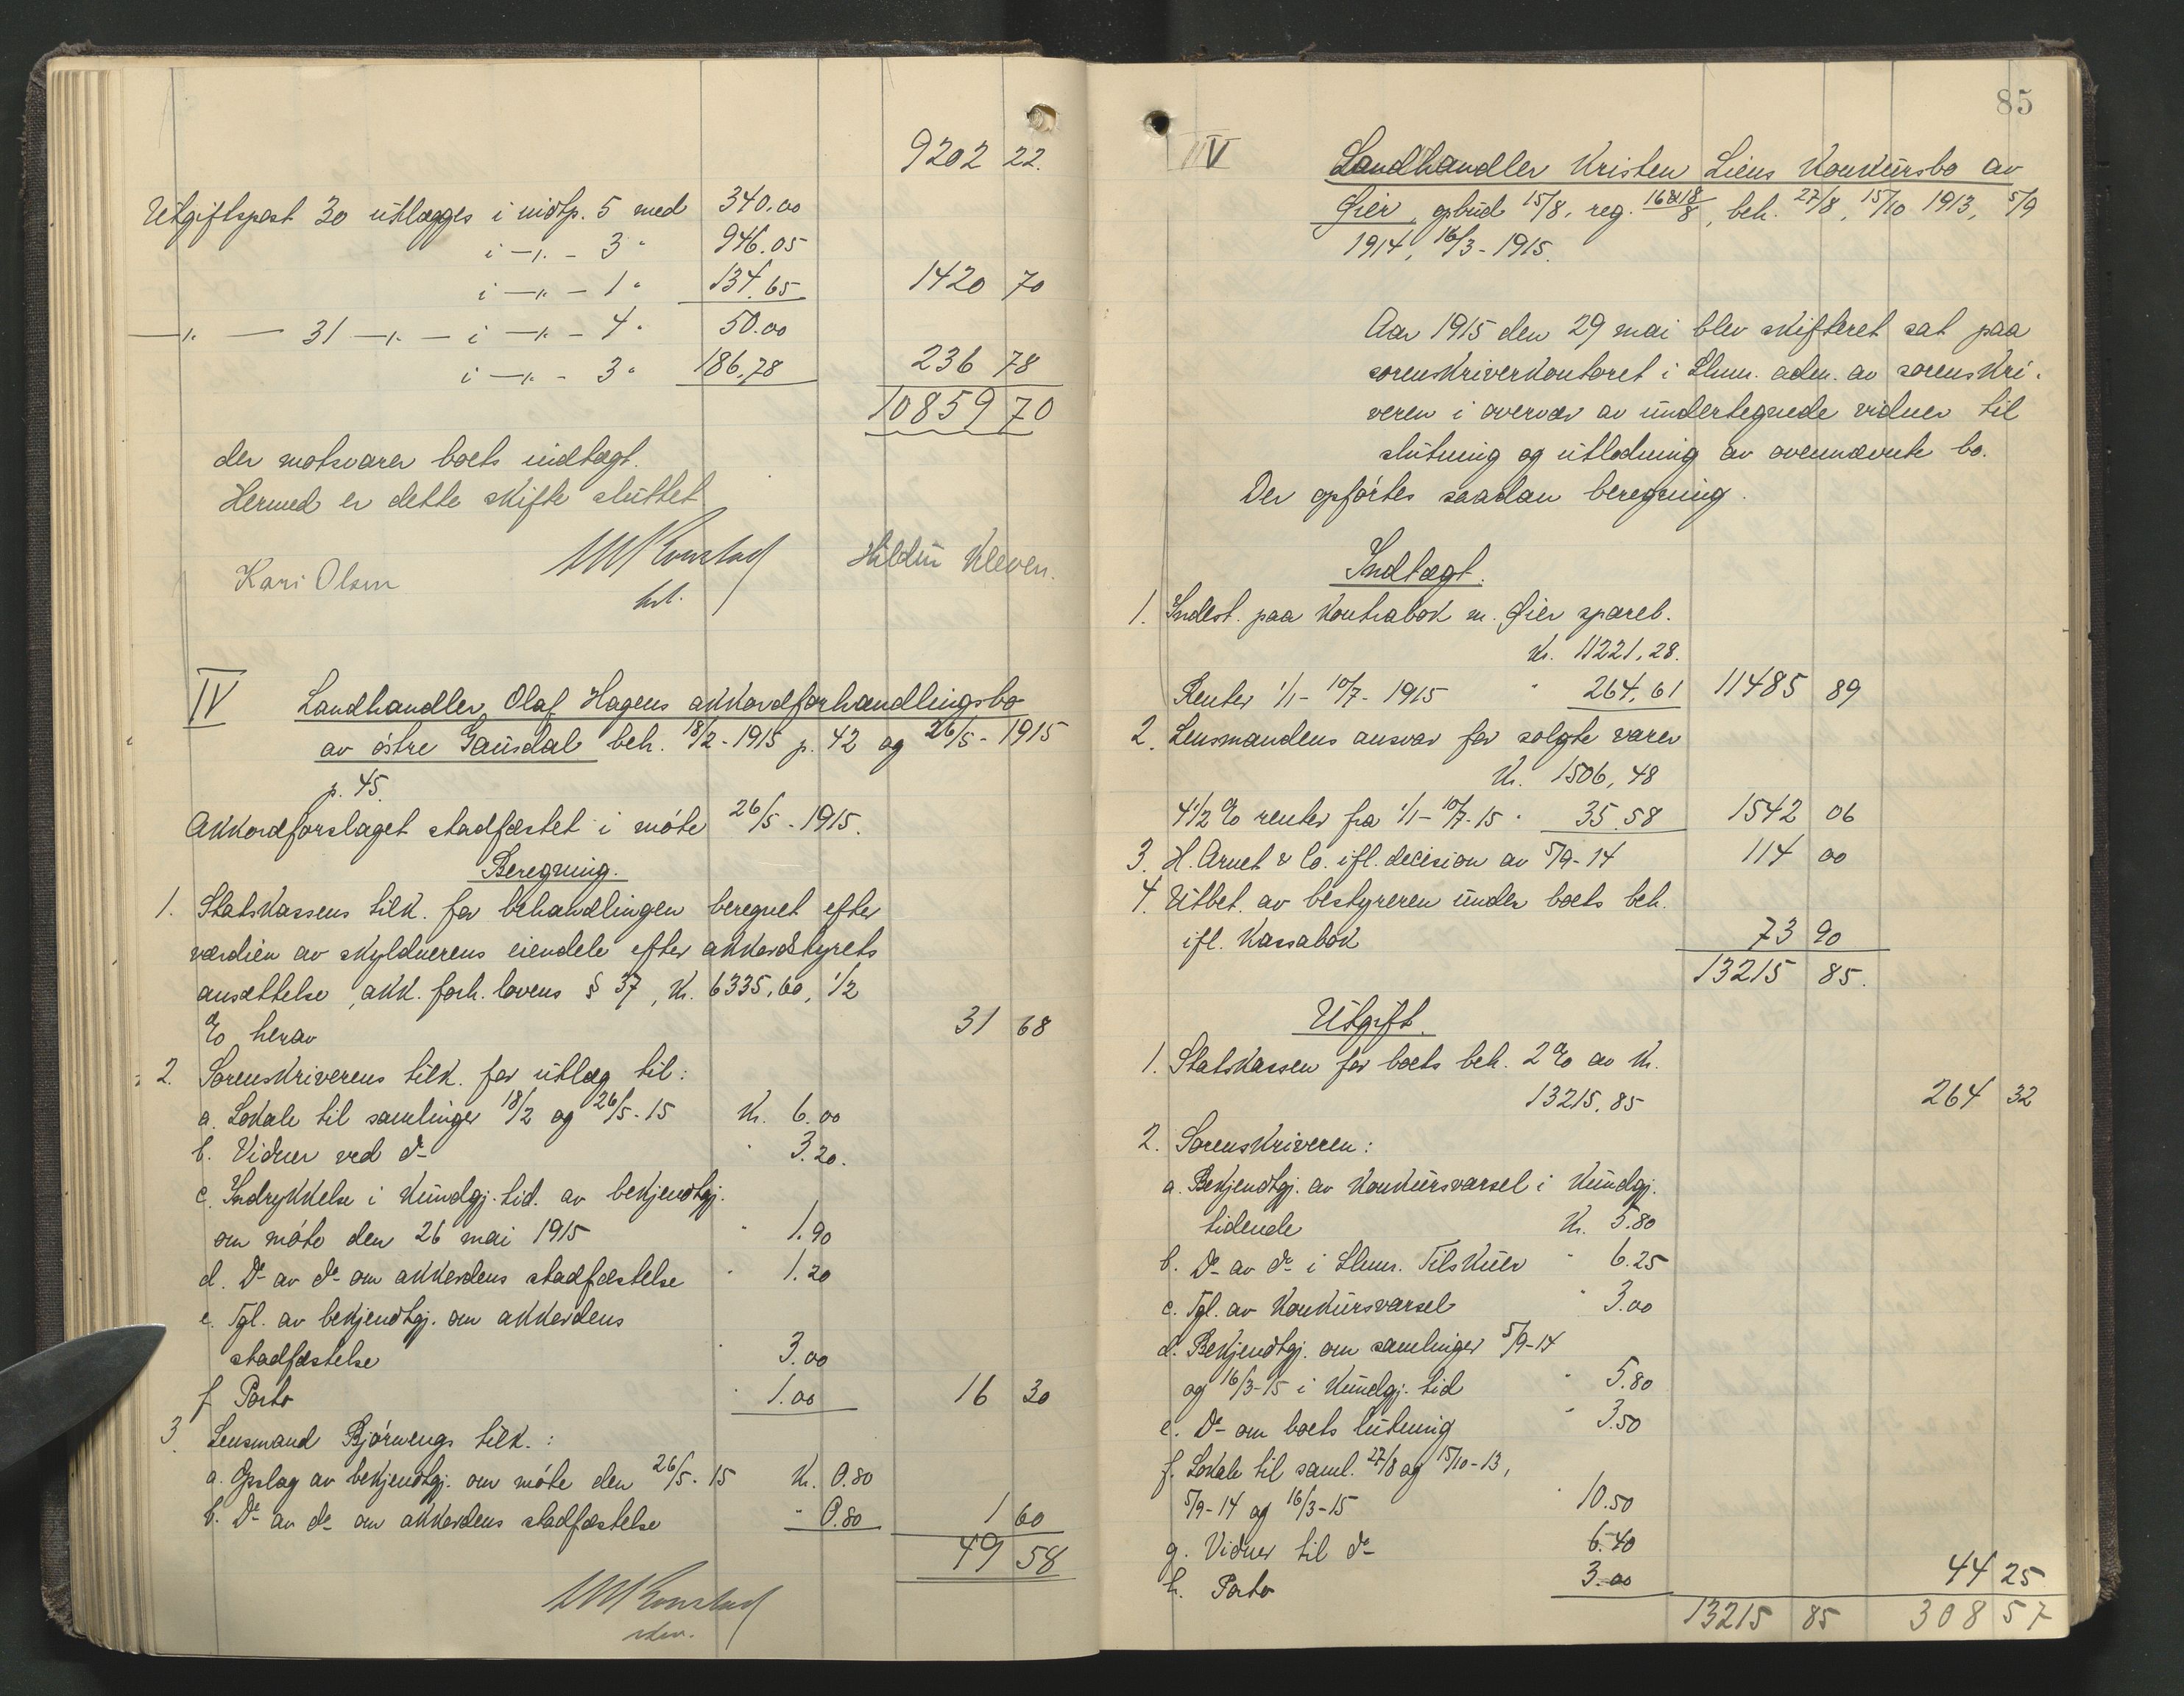 9202 22.
Utgiftspost 30 utlægges i indtp. 5 med 340.00
i —„— 3 " 946.05
i —„— 1 " 134.65 1420 70
—„— 31 —„— i —„— 4 " 50.00
i —„— 3 " 186.78 236 78
10859 70
der motsvarer boets indtægt.
Hermed er dette skifte sluttet
Kari Olsen Hildur Kleven.
IV Landhandler Olaf Hagens akkordforhandlingsbo
av østre Gausdal beh. 18/2-1915 p. 42 og 26/5-1915
p. 45.
Akkordforslaget stadfæstet i møte 26/5-1915.
Beregning.
1. Statskassens tilk. for behandlingen beregnet efter
værdien av skyldnerens eiendele efter akkordstyrets
ansættelse, akk. forh. lovens § 37, Kr. 6335,60, 1/2
% herav 31 68
2. Sorenskriverens tilk. for utlæg til:
a. Lokale til samlinger 18/2 og 26/5-15 Kr. 6.00
b. Vidner ved do " 3.20.
c. Indrykkelse i Kundgj. tid. av bekjendtgj.
om møte den 26 mai 1915 " 1.90
d. Do av do om akkordens stadfæstelse " 1.20
e. Tgl. av bekjendtgj. om akkordens
stadfæstelse " 3.00
f. Porto " 1.00 16 30
3. Lensmand Bjørnengs tilk.:
a. Opslag av bekjendtgj. om møte den 26/5-15 Kr. 0.80
b. Do av do om akkordens stadfæstelse " 0.80 1 60
49 58
85
V Landhandler Kristen Liens Konkursbo av
Øier, opbud 15/8, reg. 16&18/8, beh. 27/8, 15/10 1913, 5/9
1914, 16/3-1915.
Aar 1915 den 29 mai blev skifteret sat paa
sorenskriverkontoret i Lhmr. adm. av sorenskri-
veren i overvær av undertegnede vidner til
slutning og utlodning av ovennævnte bo.
Der opførtes saadan beregning.
Indtægt.
1. Indest. paa Kontrabok m. Øier spareb.
Kr. 11221,28.
Renter 1/1-10/7-1915 " 264,61 11485 89
2. Lensmandens ansvar for solgte varer
Kr. 1506,48
4 1/2 % renter fra 1/1-10/7-15 " 35.58 1542 06
3. H. Arnet & Co. ifl. decision av 5/9-14 114 00
4. Utbet. av bestyreren under boets beh.
ifl. Kassabok 73 90
13215 85.
Utgift.
1. Statskassen for boets beh. 2 % av Kr.
13215,85 264 32
2. Sorenskriveren:
a. Bekjendtgj. av Konkursvarsel i Kundgj.
tidende Kr. 5.80
b. Do av do i Lhmr. Tilskuer " 6.25
c. Tgl. av Konkursvarsel " 3.00
d. Bekjendtgj. om samlinger 5/9-14
og 16/3-15 i Kundgj. tid " 5.80
e. Do om boets slutning " 3.50
f. Lokale til saml. 27/8 og 15/10-13,
5/9-14 og 16/3-15 " 10.50
g. Vidner til do 6.40
h. Porto 3.00 44 25
13215 85 308 57